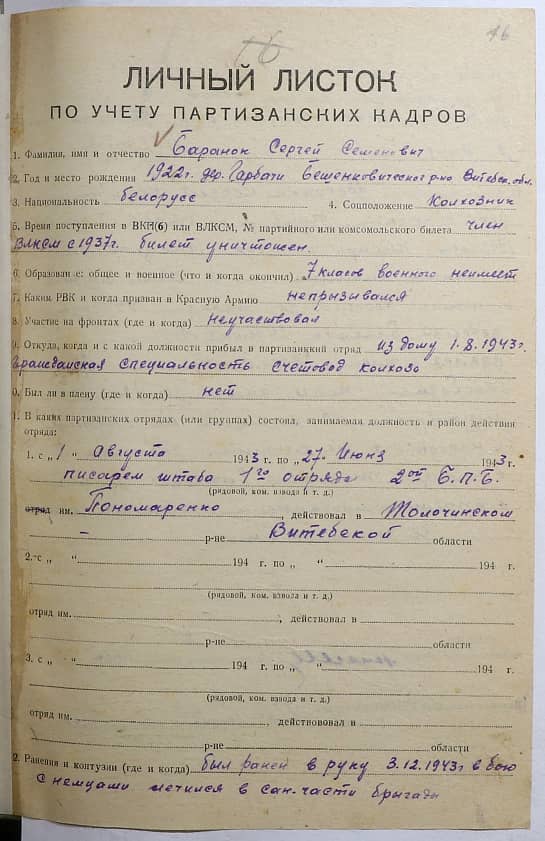 16
16
ЛИЧНЫЙ ЛИСТОК
ПО УЧЕТУ ПАРТИЗАНСКИХ КАДРОВ
1. Фамилия, имя и отчество Баранок Сергей Семенович
2. Год и место рождения 1922г. дер. Гарбачи Бешенковического р-на Витебск. обл.
3. Национальность белорусс 4. Соцположение Колхозник
5. Время поступления в ВКП(б) или ВЛКСМ, № партийного или комсомольского билета член
ВЛКСМ с 1937г. билет уничтожен.
6. Образование: общее и военное (что и когда окончил) 7 класов военного неимеет
7. Каким РВК и когда призван в Красную Армию непризывался
8. Участие на фронтах (где и когда) неучаствовал
9. Откуда, когда и с какой должности прибыл в партизанский отряд из дому 1.8.1943г.
гражданская специальность счетовод колхоза
0. Был ли в плену (где и когда) нет
1. В каких партизанских отрядах (или группах) состоял, занимаемая должность и район действия
отряда:
1. с „ 1 “ Августа 1943 г. по „ 27. Июня 1943 г.
писарем штаба 1го отряда 2ой Б.П.Б.
(рядовой, ком. взвода и т. д.)
отряд им. Пономаренко, действовал в Толочинском
– р-не Витебской области
2. с „ “ 194 г. по „ “ 194 г.
(рядовой, ком. взвода и т. д.)
отряд им. , действовал в
р-не области
3. с „ “ 194 г. по „ “ 194 г.
(рядовой, ком. взвода и т. д.)
отряд им. , действововал в
р-не области
2. Ранения и контузии (где и когда) был ранен в руку 3.12.1943г в бою
с немцами лечился в сан.части бригады